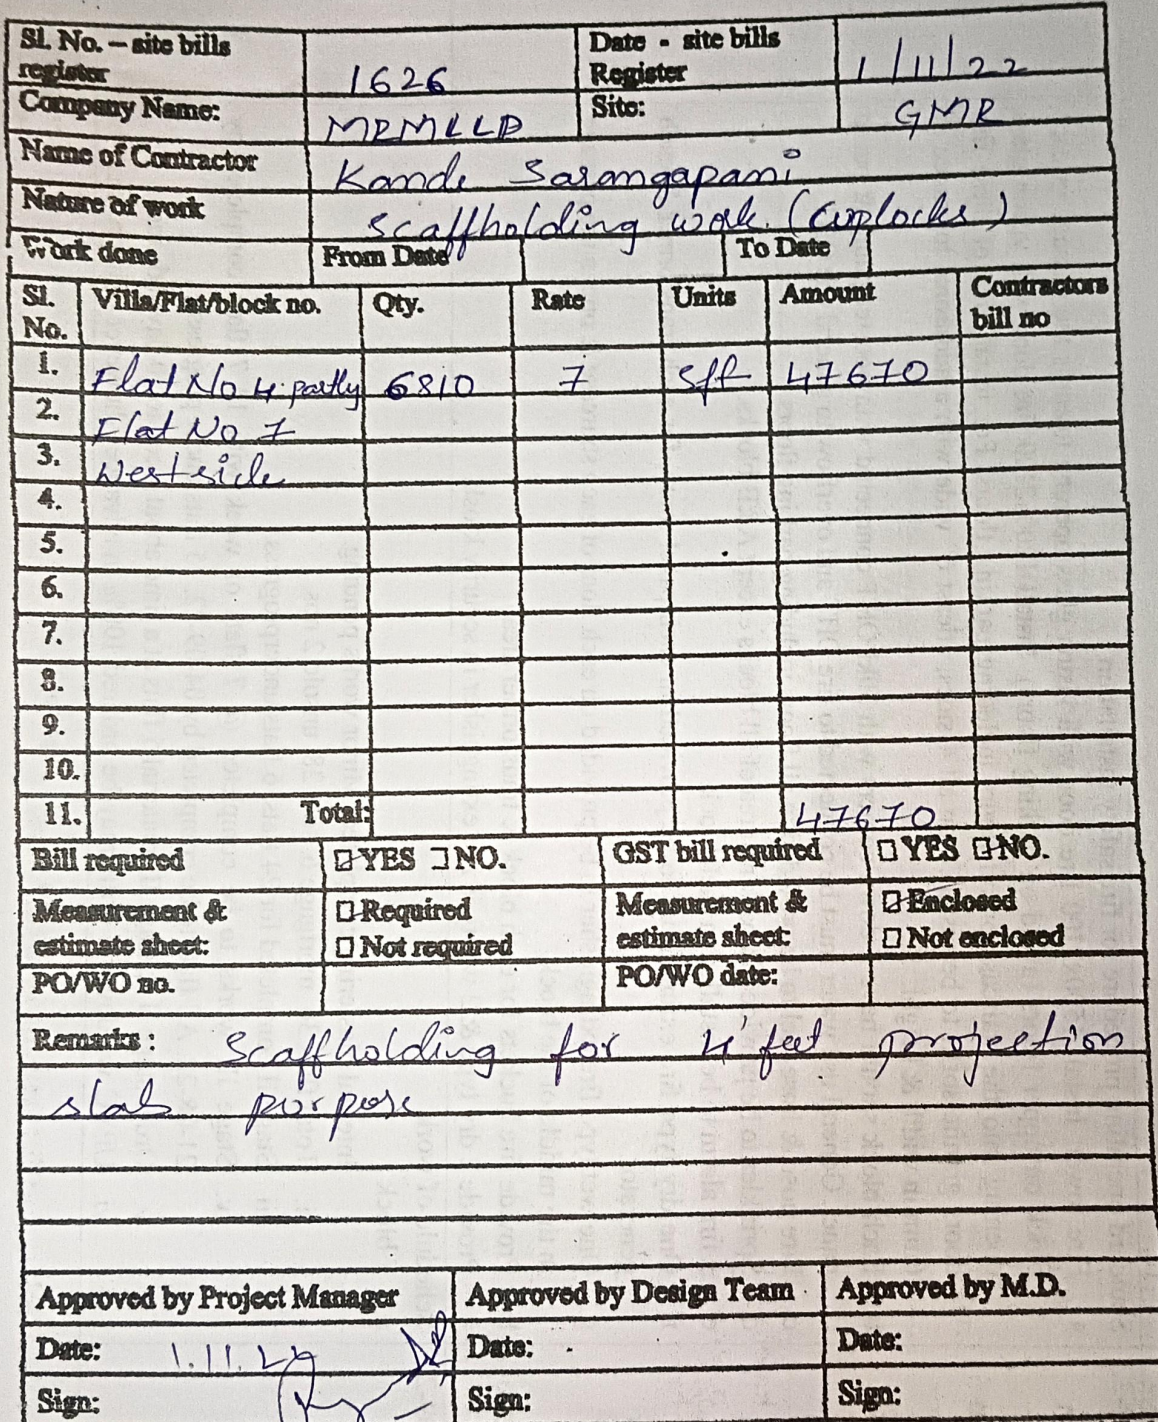 Sl. No. – site bills register 1626 Date - site bills Register 1/11/22
Company Name: MRMLLP Site: GMR
Name of Contractor Kande Sarangapani
Nature of work Scaffholding work. (Cuplocks)
Work done From Date To Date
Sl. No. Villa/Flat/block no. Qty. Rate Units Amount Contractors bill no
1. Flat No 4 partly 6810 7 sft 47670
2. Flat No 7
3. Westside
4.
5.
6.
7.
8.
9.
10.
11. Total: 47670
Bill required YES NO. GST bill required YES NO.
Measurement & estimate sheet: Required Not required Measurement & estimate sheet: Enclosed Not enclosed
PO/WO no. PO/WO date:
Remarks : Scaffholding for 4 feet projection
slab purpose
Approved by Project Manager Approved by Design Team Approved by M.D.
Date: 1.11.22 Date: Date:
Sign: Sign: Sign: